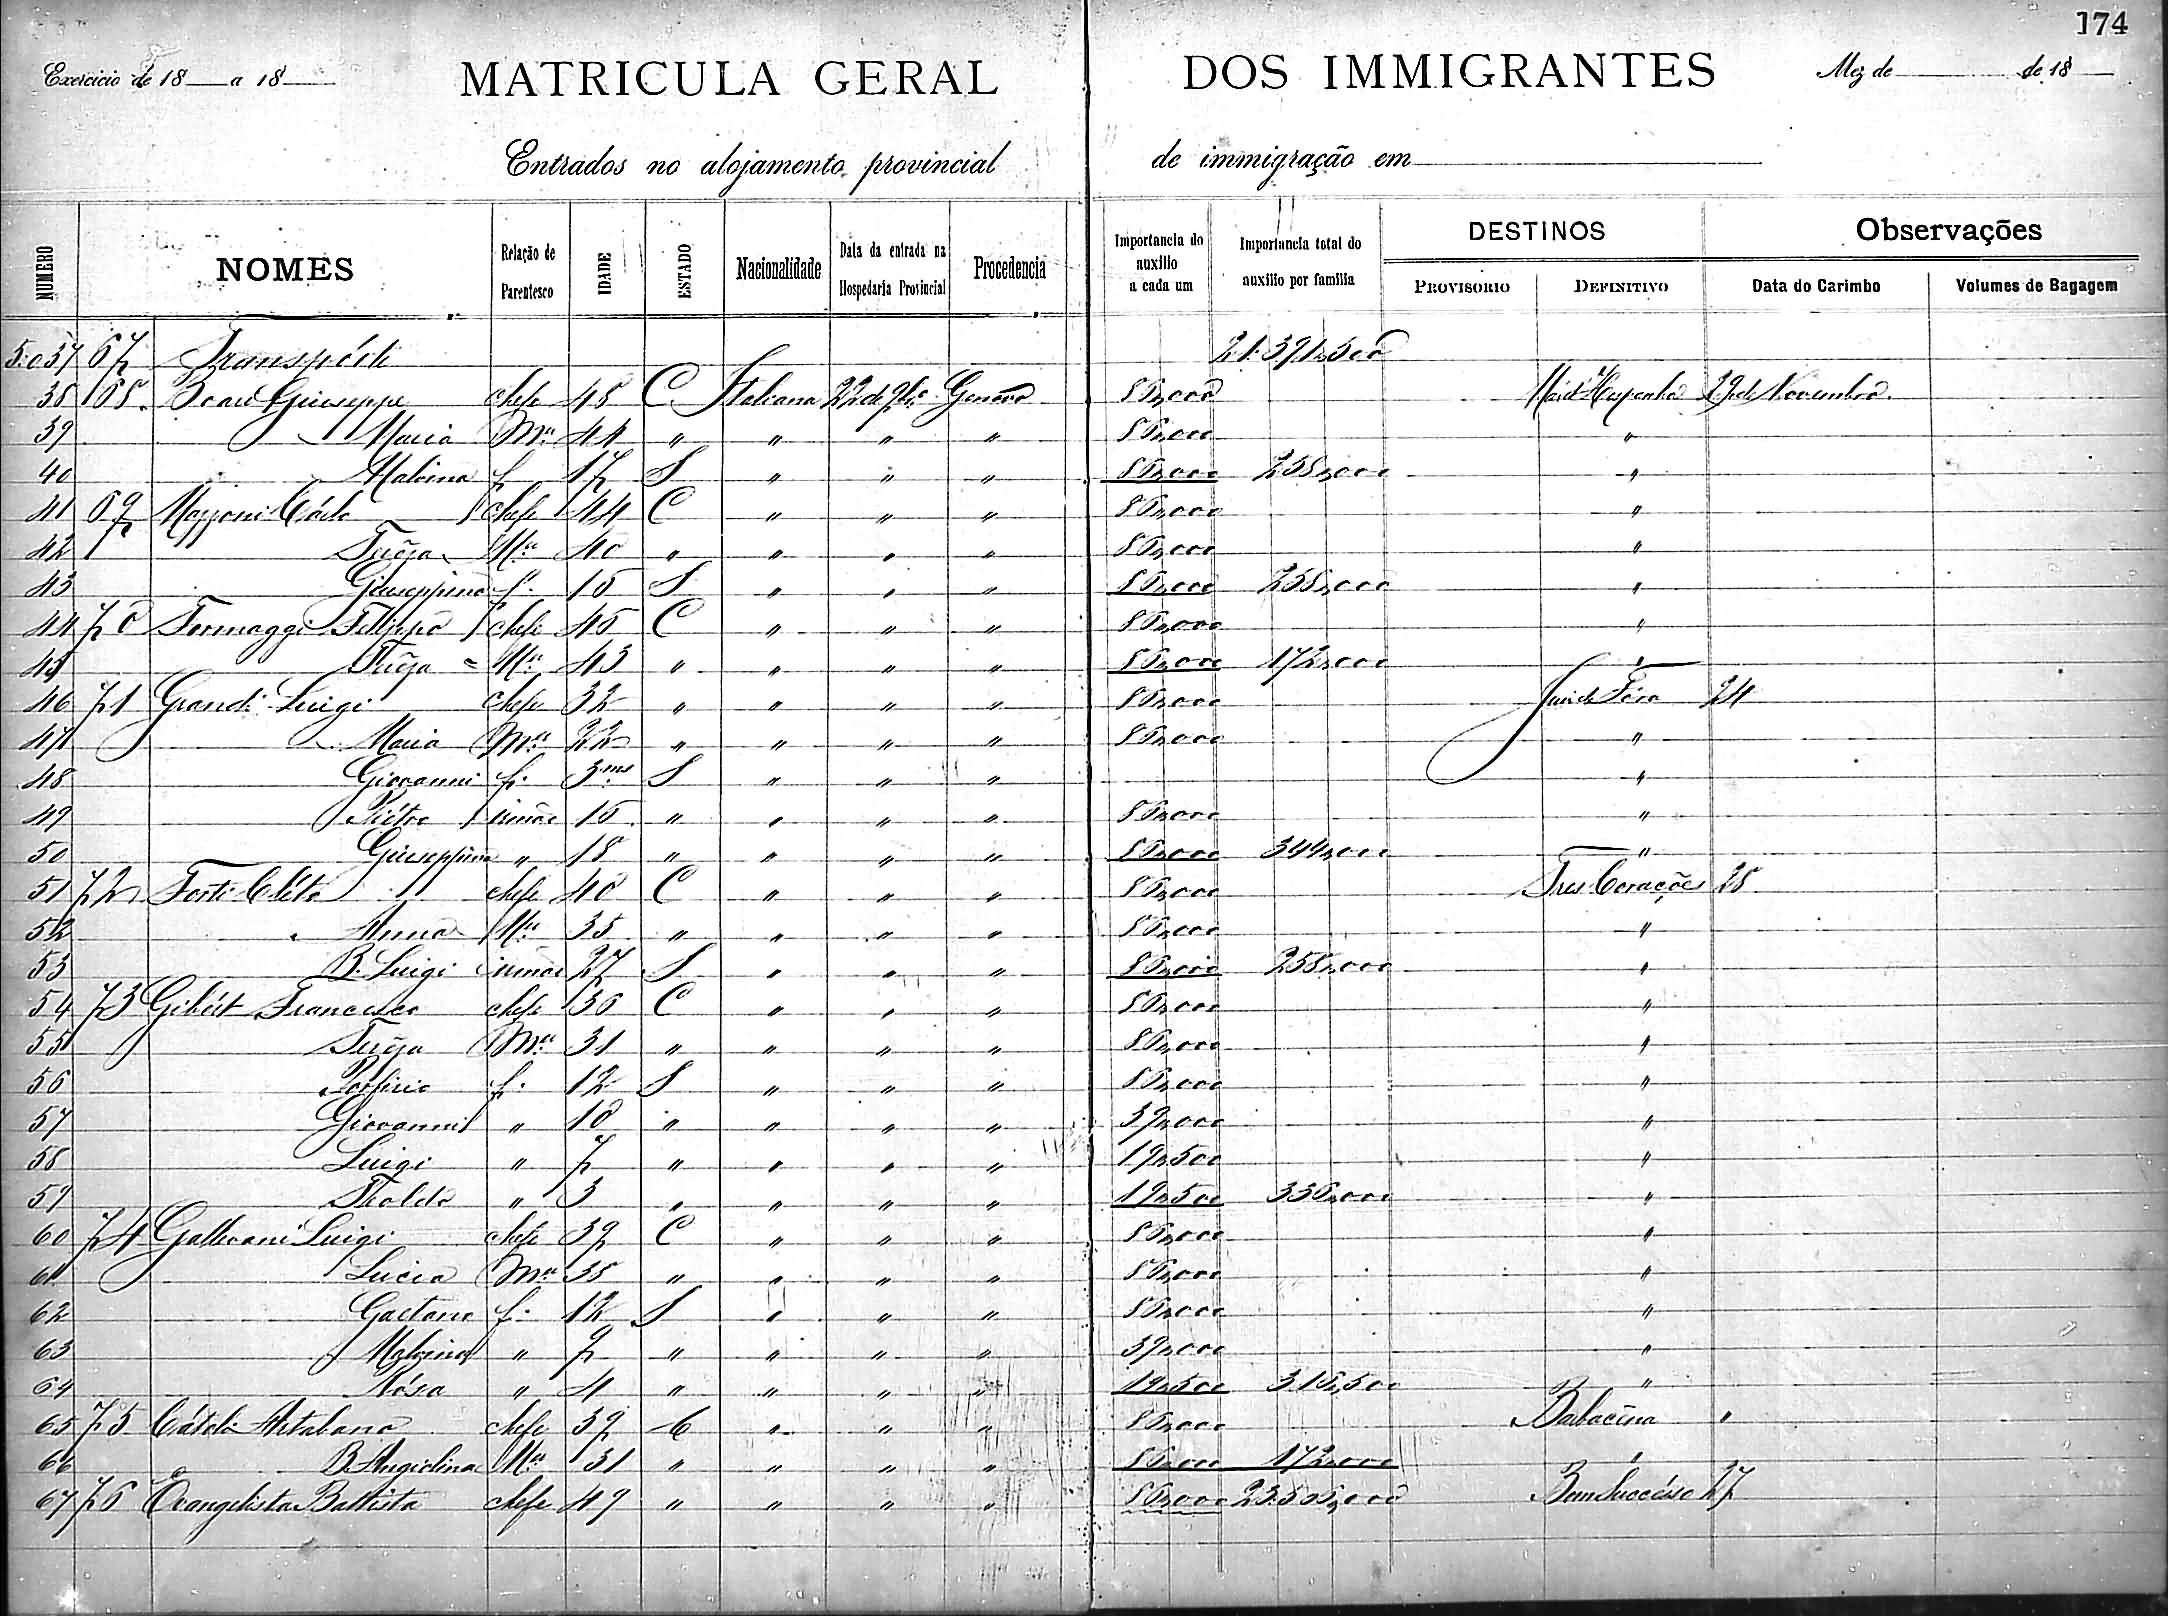 174
Exercicio de 18 a 18 MATRICULA GERAL DOS IMMIGRANTES Mez de de 18
Entrados no alojamento provincial de immigração em
NUMERO NOMES Relação de Parentesco IDADE ESTADO Nacionalidade Data da entrada na Hospedaria Provincial Procedencia Importancia do auxilio a cada um Importancia total do auxilio por familia DESTINOS PROVISORIO DEFINITIVO Observações Data do Carimbo Volumes de Bagagem
5.037 67 Transpórte 21:391,500
38 68 Giuseppe chefe 48 C Italiana 22 de 9bro Genova 86,000 Mar d'Hespanha 29 de Novembro
39 Maria Mer 44 " " " " 86,000 "
40 Malvina f 17 S " " " 86,000 258,000 "
41 69 Mazzoni Cárlo chefe 44 C " " " 86,000 "
42 Terêza Mer 40 " " " " 86,000 "
43 Giuseppina f. 16 S " " " 86,000 258,000 "
44 70 Formaggi Filippo chefe 46 C " " " 86,000 "
45 Terêza Mer 43 " " " " 86,000 172,000 "
46 71 Grandi Luigi chefe 32 " " " " 86,000 Juiz de Fóra 24
47 Maria Mer 22 " " " " 86,000 "
48 Giovanni f. 3 ms S " " " "
49 Piétro irmão 16 " " " " 86,000 "
50 Giuseppina " 18 " " " " 86,000 344,000 "
51 72 Forti Cléto chefe 40 C " " " 86,000 Tres Corações 28
52 Anna Mer 35 " " " " 86,000 "
53 B. Luigi irmão 27 S " " " 86,000 258,000 "
54 73 Gibért Francesco chefe 36 C " " " 86,000 "
55 Terêza Mer 31 " " " " 86,000 "
56 Porfirio f. 12 S " " " 86,000 "
57 Giovanni " 10 " " " " 39,000 "
58 Luigi " 7 " " " " 19,500 "
59 " 3 " " " " 19,500 336,000 "
60 74 Luigi chefe 39 C " " " 86,000 "
61 Lucia Mer 35 " " " " 86,000 "
62 Gaetano f. 12 S " " " 86,000 "
63 Malvina " 9 " " " " 39,000 "
64 Rósa " 4 " " " " 19,500 316,500 "
65 75 Artabano chefe 39 C " " " 86,000 Babacena "
66 B. Angiolina Mer 31 " " " " 86,000 172,000 "
67 76 Evangelista Battista chefe 49 " " " " 86,000 23:505,000 Bom Succésso 27